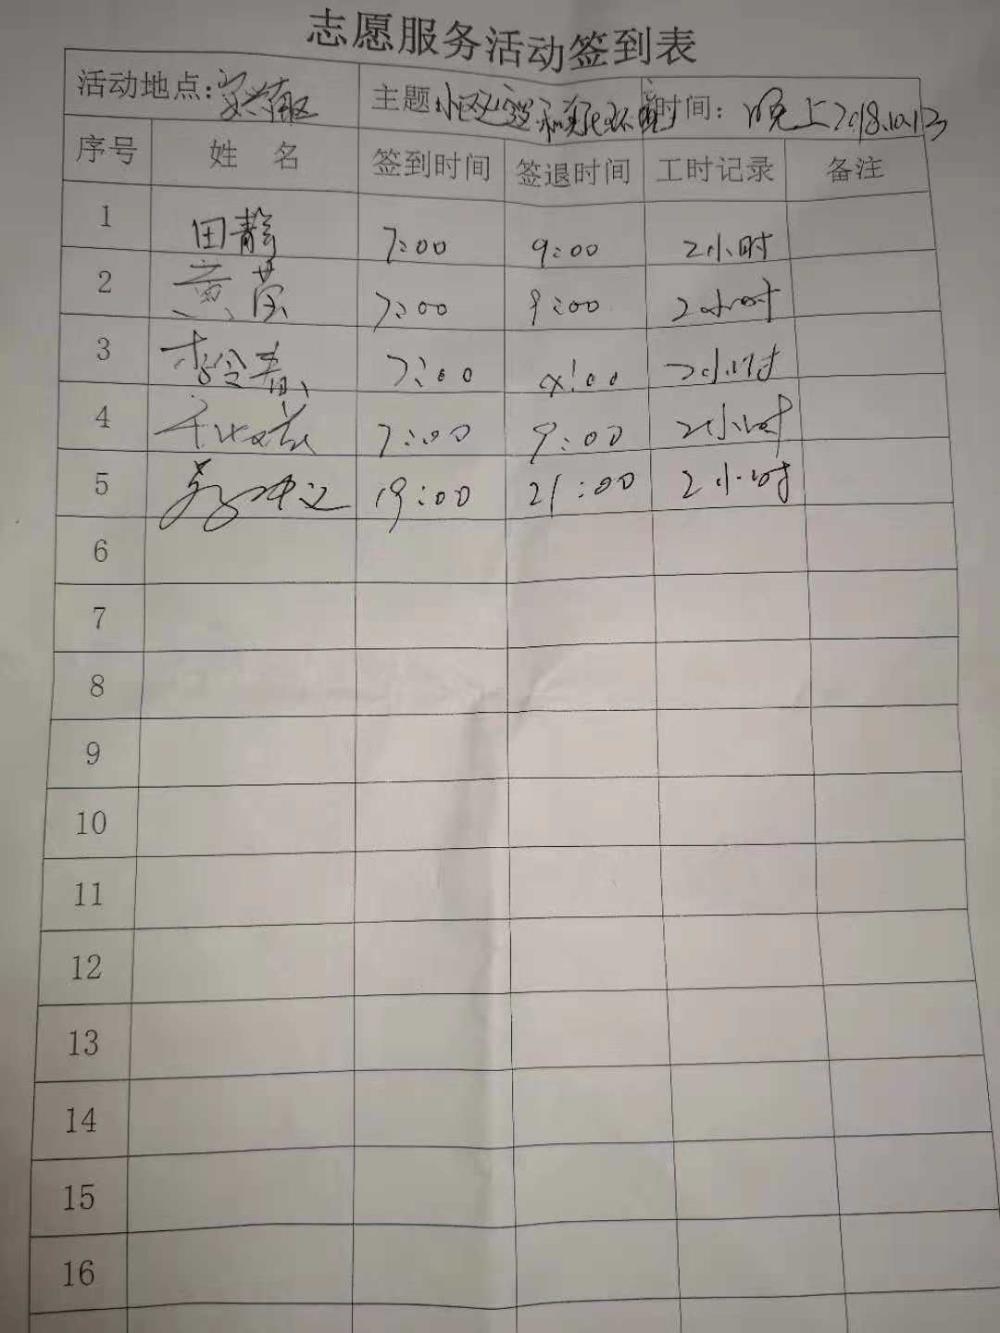 志愿服务活动签到表
活动地点: 主题: 小区 和美化环境 时间: 晚上2018.10.13
序号 姓 名 签到时间 签退时间 工时记录 备注
1 田静 7:00 9:00 2小时
2 黄莹 7:00 9:00 2小时
3 李会春 7:00 9:00 2小时
4 7:00 9:00 2小时
5 19:00 21:00 2小时
6
7
8
9
10
11
12
13
14
15
16